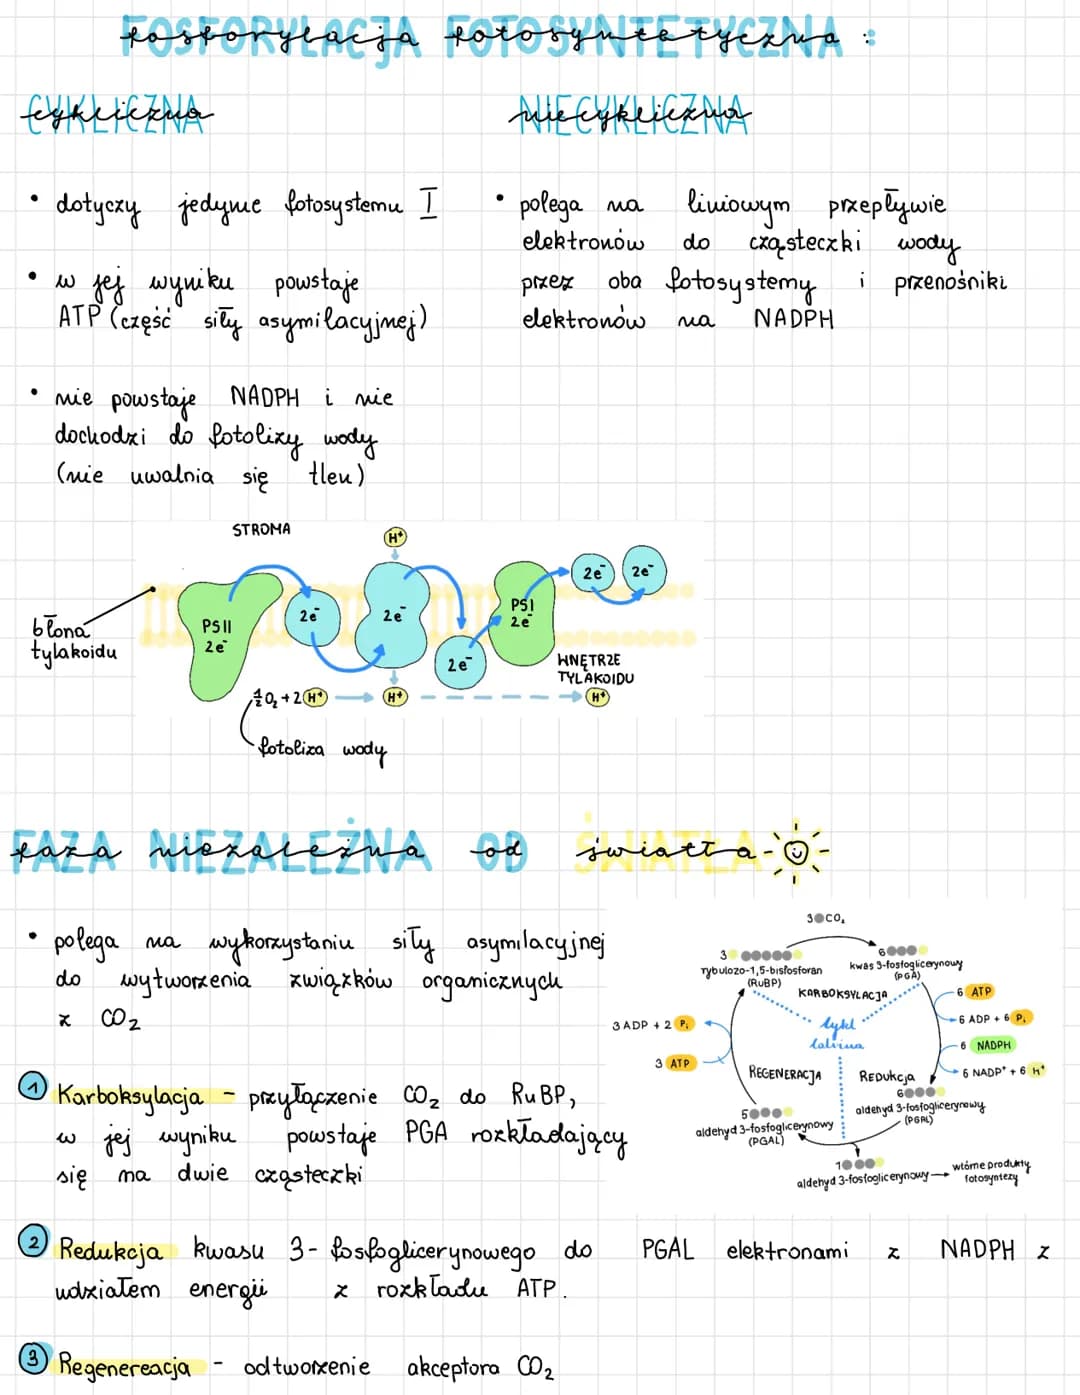 FOSFORYLACJA FOTOSYNTETYCZNA :
CYKLICZNA
• dotyczy jedynie fotosystemu I
• w jej wyniku powstaje
ATP (część siły asymilacyjnej)
• nie powstaje NADPH i nie
dochodzi do fotolizy wody
(nie uwalnia się tlen)
NIECYKLICZNA
• polega na liniowym przepływie
elektronów do cząsteczki wody
przez oba fotosystemy i przenośniki
elektronów na NADPH
STROMA
H⁺
błona
tylakoidu
PSII
2e⁻
2e⁻
2e⁻
2e⁻
PSI
2e⁻
2e⁻
2e⁻
WNĘTRZE
TYLAKOIDU
½O₂ + 2 H⁺
H⁺
H⁺
fotoliza wody
FAZA NIEZALEŻNA OD ŚWIATŁA
• polega na wykorzystaniu siły asymilacyjnej
do wytworzenia związków organicznych
z CO₂
1 Karboksylacja - przyłączenie CO₂ do RuBP,
w jej wyniku powstaje PGA rozkładający
się na dwie cząsteczki
3 CO₂
3
rybulozo-1,5-bisfosforan
(RuBP)
6
kwas 3-fosfoglicerynowy
(PGA)
KARBOKSYLACJA
6 ATP
6 ADP + 6 Pᵢ
6 NADPH
6 NADP⁺ + 6 H⁺
3 ADP + 2 Pᵢ
3 ATP
Cykl
Calvina
REGENERACJA
REDUKCJA
6
aldehyd 3-fosfoglicerynowy
(PGAL)
5
aldehyd 3-fosfoglicerynowy
(PGAL)
1
aldehyd 3-fosfoglicerynowy
wtórne produkty
fotosyntezy
2 Redukcja kwasu 3-fosfoglicerynowego do PGAL elektronami z NADPH z
udziałem energii z rozkładu ATP.
3 Regenereacja - odtworzenie akceptora CO₂